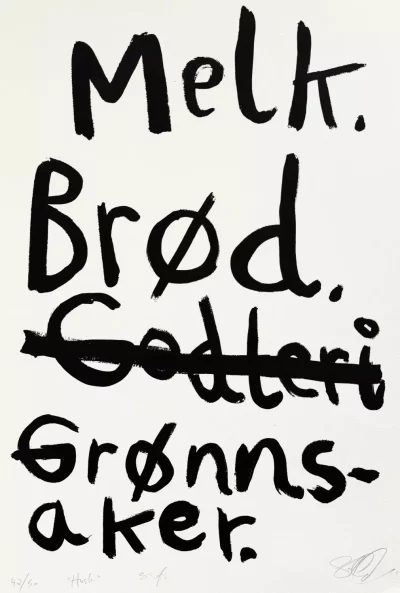 Melk.
Brød.
Godteri
Grønns-
aker.
42/50 "Husk"